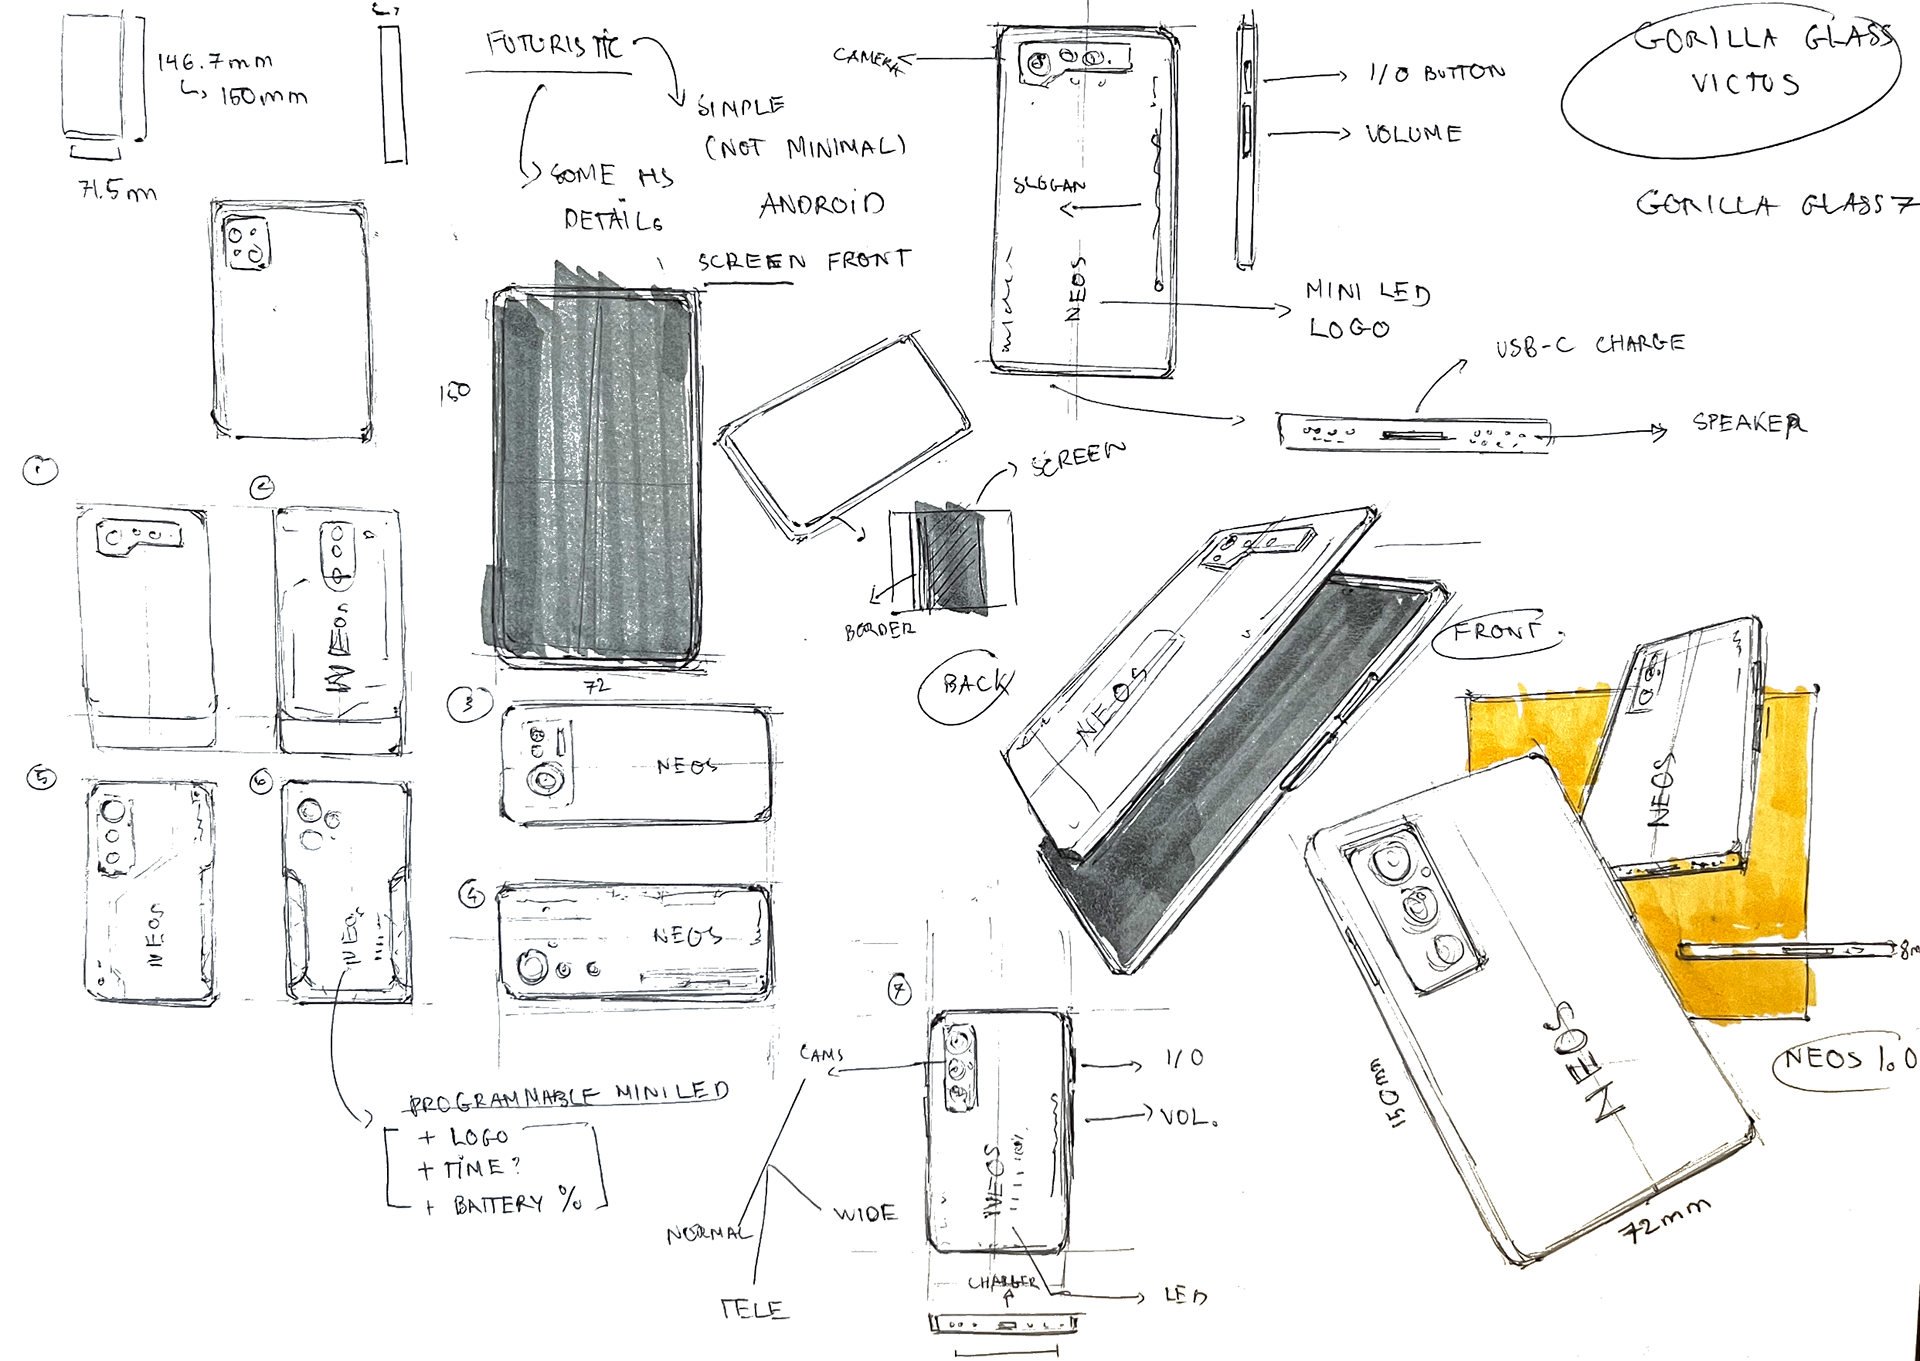 146.7mm
↳ 150mm
71.5m
FUTURISTIC
SIMPLE
(NOT MINIMAL)
SOME
DETAILS
ANDROID
SCREEN FRONT
150
72
CAMERA
SLOGAN
NEOS
I/O BUTTON
VOLUME
MINI LED
LOGO
USB-C CHARGE
SPEAKER
GORILLA GLASS
VICTUS
GORILLA GLASS 7
SCREEN
BORDER
BACK
FRONT
NEOS
NEOS
NEOS
8m
150mm
72mm
NEOS 1.0
1
2
NEOS
3
NEOS
4
NEOS
5
NEOS
6
NEOS
PROGRAMMABLE MINI LED
+ LOGO
+ TIME?
+ BATTERY %
7
CAMS
NORMAL
WIDE
TELE
I/O
VOL.
NEOS
LED
CHARGER